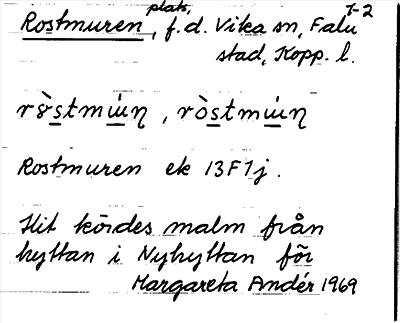 Rostmuren, plats, f.d. Vika sn, Falu 1-2
stad, Kopp. l.
rɤ̀stmú̇u̇n, ròstmú̇u̇n
Rostmuren ek 13F1j.
Hit kördes malm från
hyttan i Nyhyttan för
Margareta Andér 1969